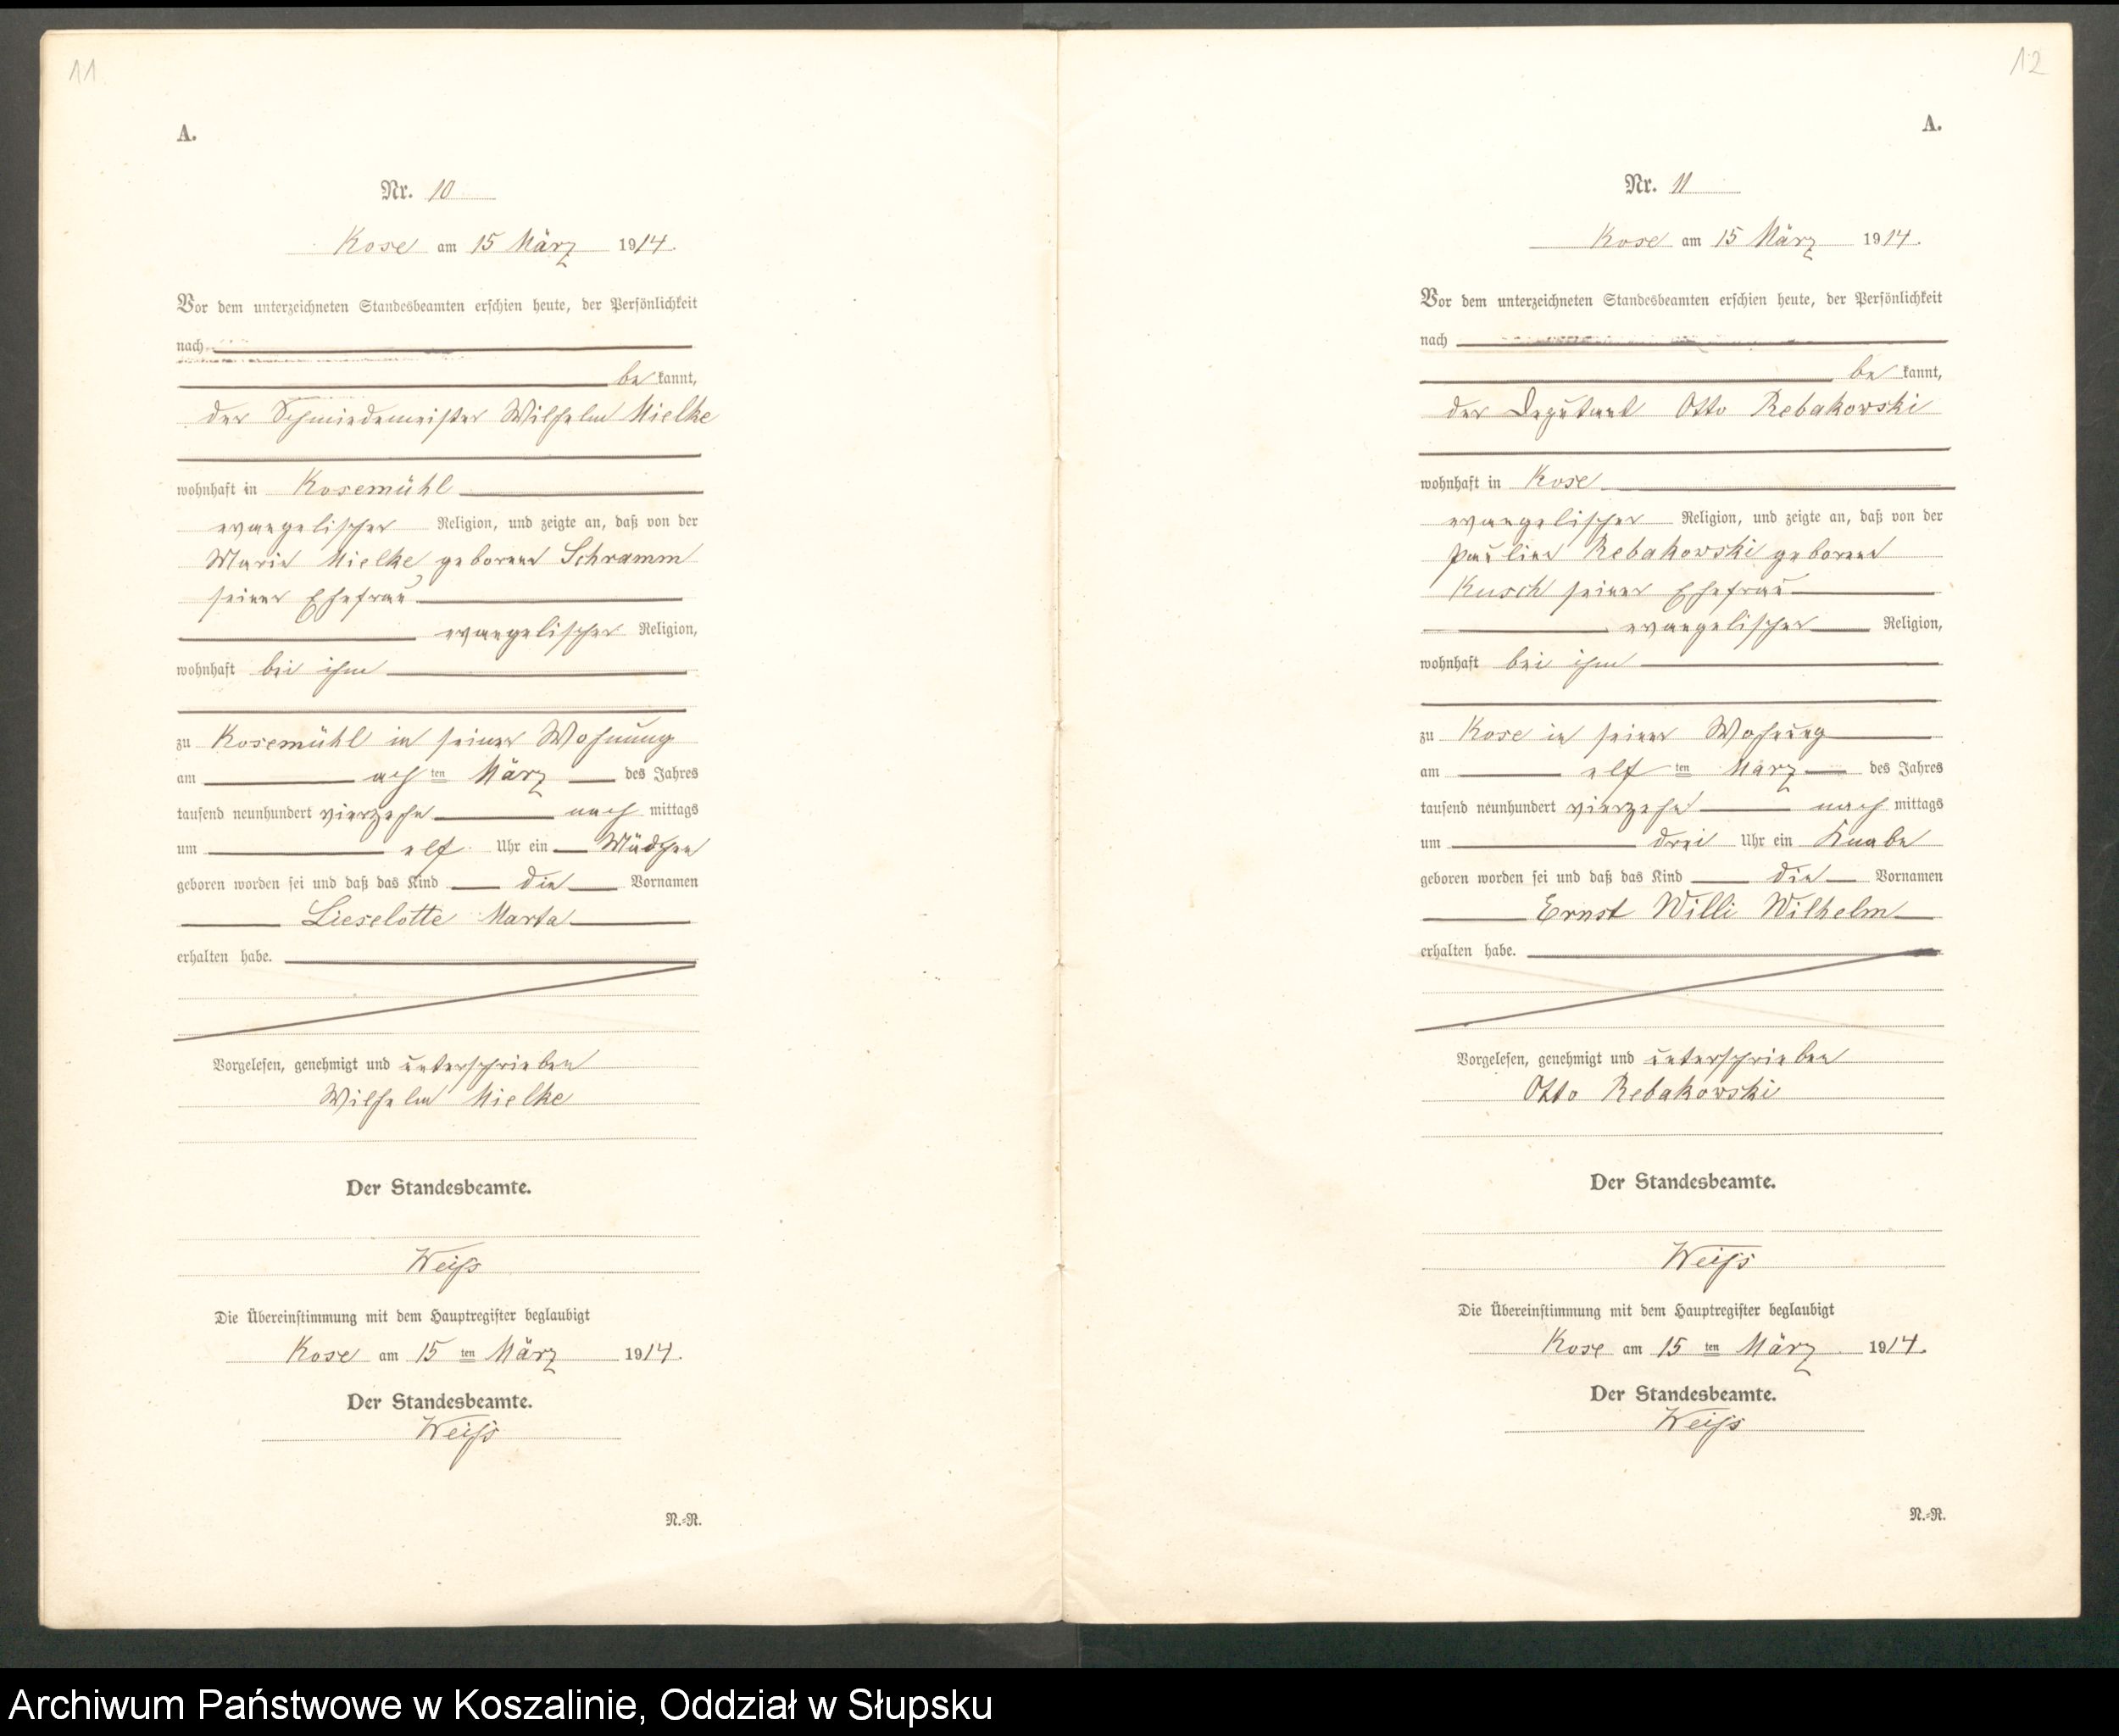 11
A.
Nr. 10
Kose am 15 März 1914.
Vor dem unterzeichneten Standesbeamten erschien heute, der Persönlichkeit
nach
be kannt,
der Schmiedemeister Wilhelm Mielke
wohnhaft in Kosemühl
evangelischer Religion, und zeigte an, daß von der
Marie Mielke geborene Schramm
seiner Ehefrau
evangelischer Religion,
wohnhaft bei ihm
zu Kosemühl in seiner Wohnung
am ach ten März des Jahres
tausend neunhundert vierzehn nach mittags
um elf Uhr ein Mädchen
geboren worden sei und daß das Kind die Vornamen
Lieselotte Marta
erhalten habe.
Vorgelesen, genehmigt und unterschrieben
Wilhelm Mielke
Der Standesbeamte.
Weiß
Die Übereinstimmung mit dem Hauptregister beglaubigt
Kose am 15 ten März 1914.
Der Standesbeamte.
Weiß
N.=R.
12
A.
Nr. 11
Kose am 15 März 1914.
Vor dem unterzeichneten Standesbeamten erschien heute, der Persönlichkeit
nach
be kannt,
der Deputant Otto Rebakowski
wohnhaft in Kose
evangelischer Religion, und zeigte an, daß von der
Pauline Rebakowski geborene
Kusch seiner Ehefrau
evangelischer Religion,
wohnhaft bei ihm
zu Kose in seiner Wohnung
am elf ten März des Jahres
tausend neunhundert vierzehn nach mittags
um drei Uhr ein Knabe
geboren worden sei und daß das Kind die Vornamen
Ernst Willi Wilhelm
erhalten habe.
Vorgelesen, genehmigt und unterschrieben
Otto Rebakowski
Der Standesbeamte.
Weiß
Die Übereinstimmung mit dem Hauptregister beglaubigt
Kose am 15 ten März 1914.
Der Standesbeamte.
Weiß
N.=R.
Archiwum Państwowe w Koszalinie, Oddział w Słupsku